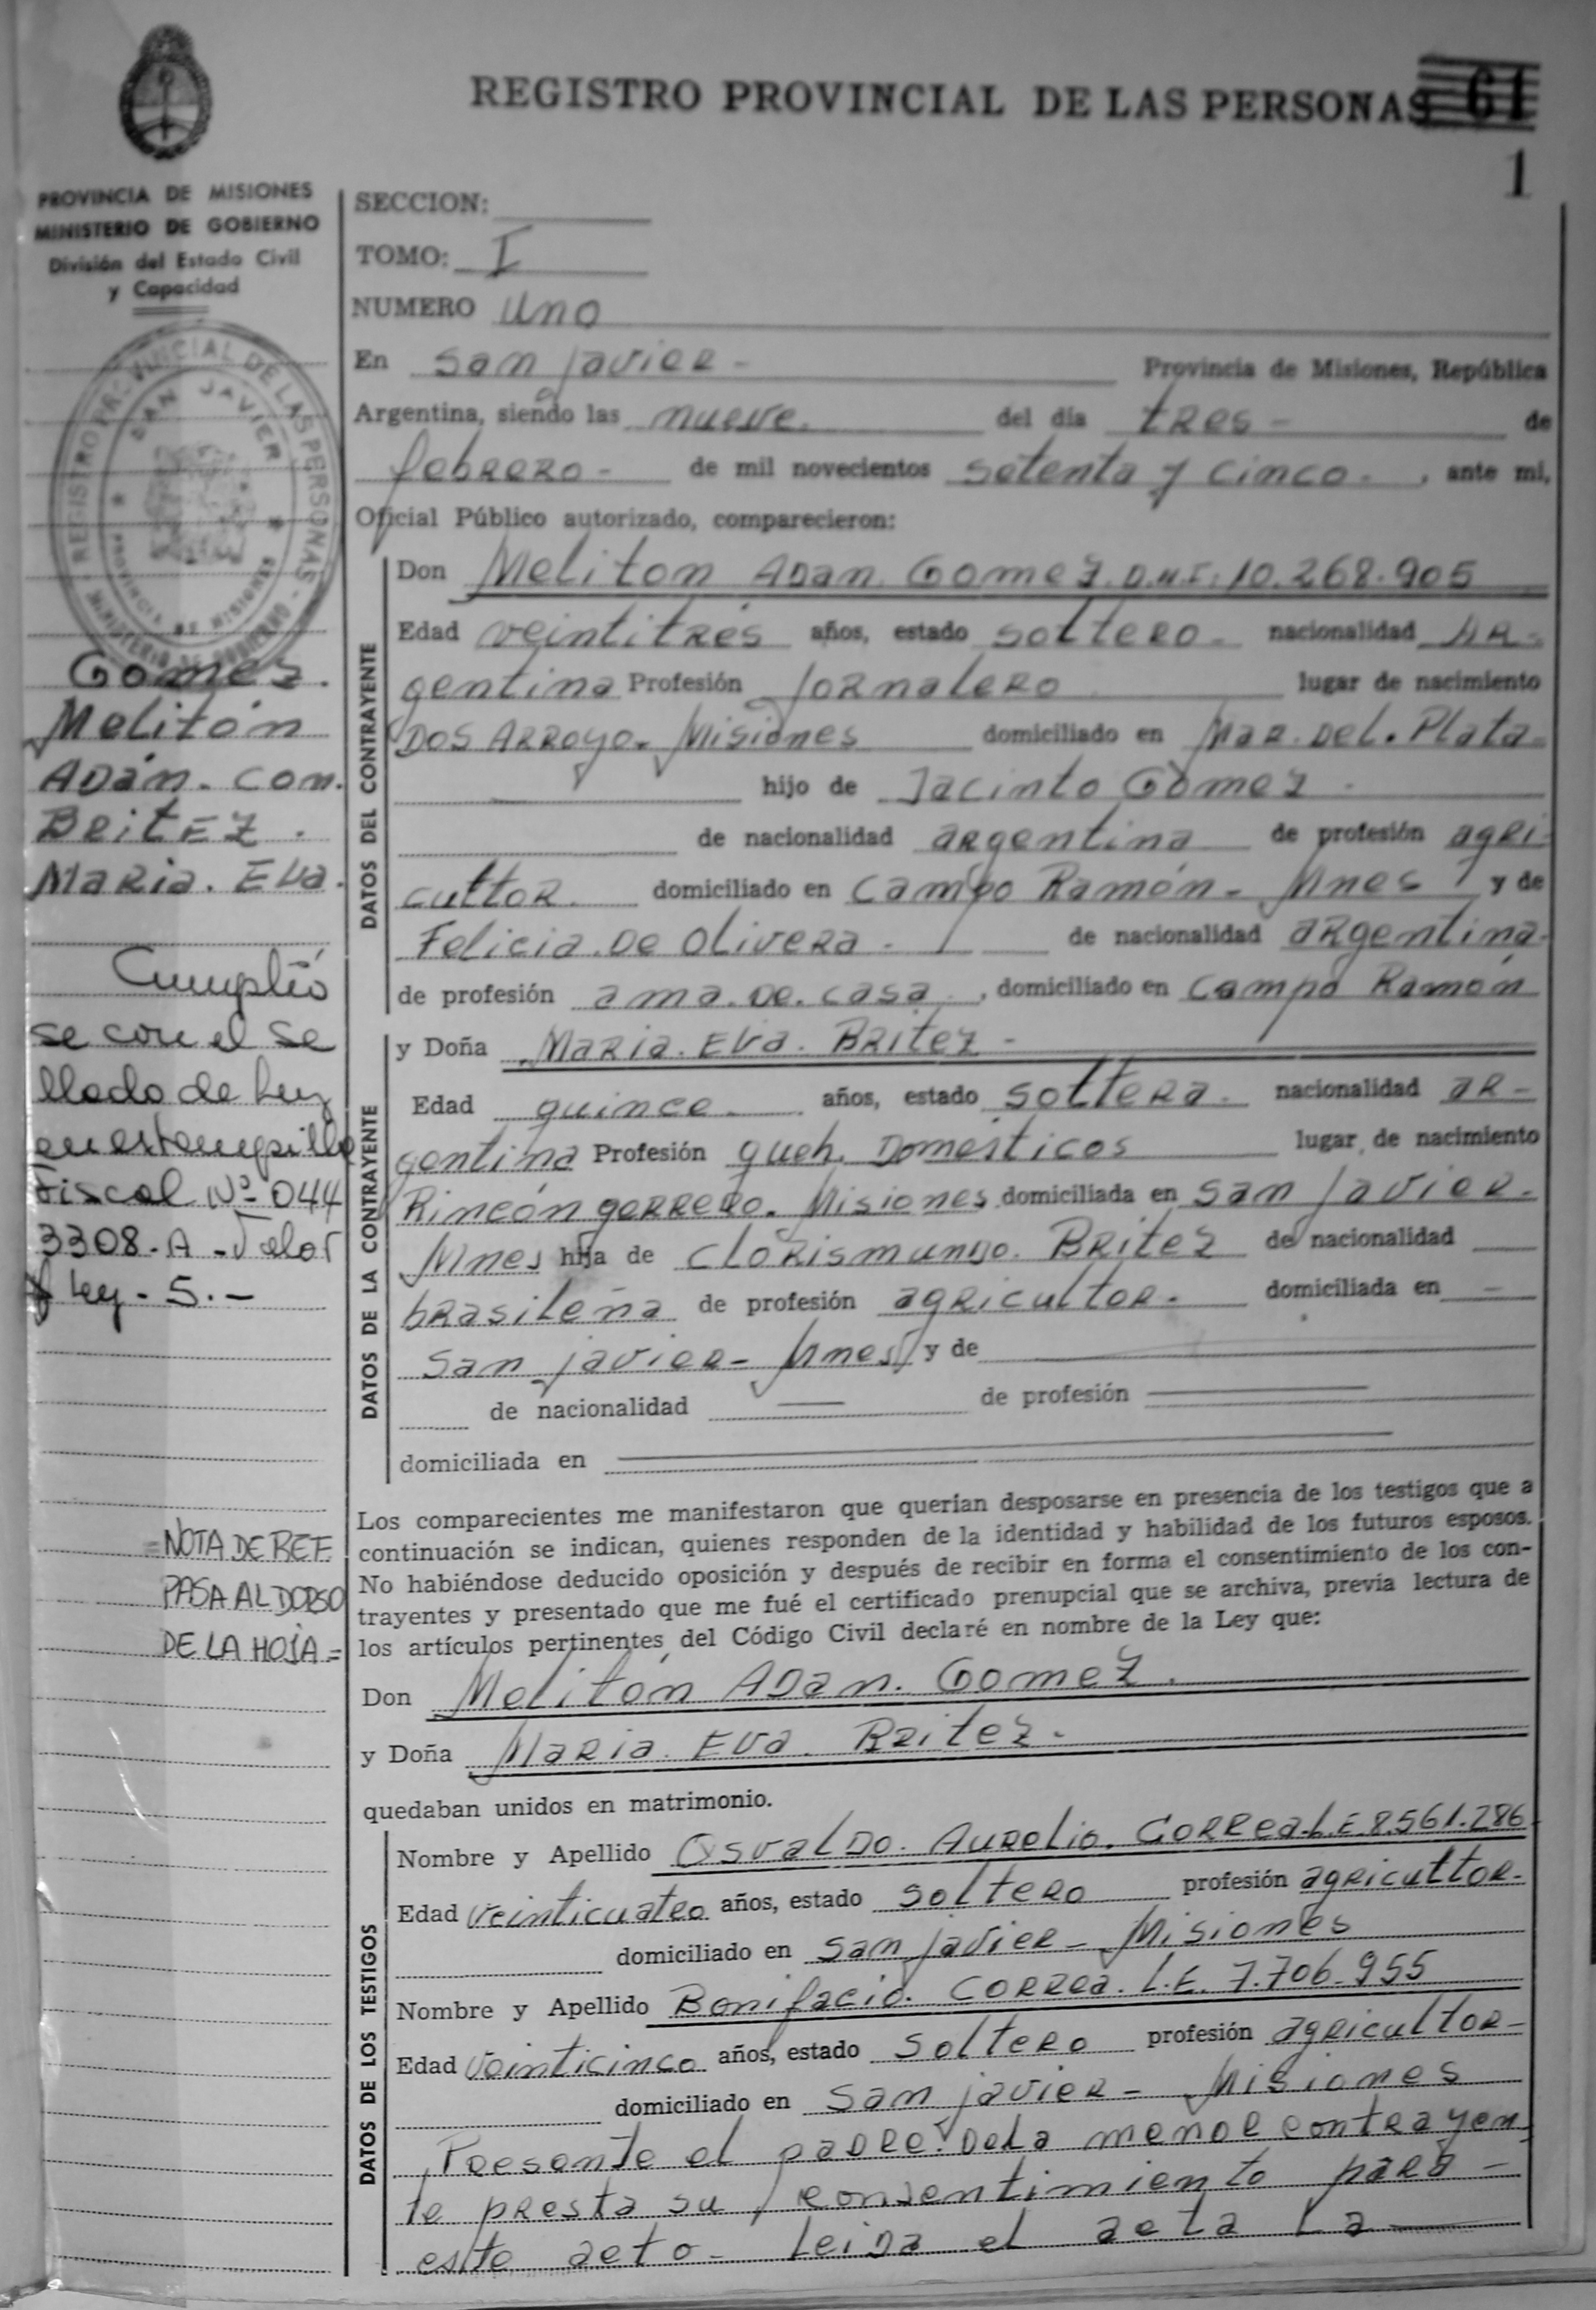 REGISTRO PROVINCIAL DE LAS PERSONAS 61
1
PROVINCIA DE MISIONES
MINISTERIO DE GOBIERNO
División del Estado Civil
y Capacidad
REGISTRO PROVINCIAL DE LAS PERSONAS
SAN JAVIER
PROVINCIA DE MISIONES
MINISTERIO DE GOBIERNO
Gomez.
Melitón
Adán. con.
Britez.
Maria. Eva.
Cumplió
se con el se
llado de Ley
en estampilla
Fiscal Nº 044
3308-A-Valor
$ Ley - 5.-
=NOTA DE REF.
PASA AL DORSO
DE LA HOJA=
SECCION:
TOMO: I
NUMERO uno
En San Javier - Provincia de Misiones, República
Argentina, siendo las nueve. del día tres - de
febrero - de mil novecientos setenta y cinco - , ante mi,
Oficial Público autorizado, comparecieron:
DATOS DEL CONTRAYENTE
Don Meliton Adan. Gomez. D.N.I. 10.268.905
Edad veintitrés años, estado soltero - nacionalidad Ar-
gentina Profesión Jornalero lugar de nacimiento
Dos Arroyo - Misiones domiciliado en Mar. Del. Plata-
hijo de Jacinto Gomez -
de nacionalidad argentina de profesión agri-
cultor. domiciliado en Campo Ramón - Mnes y de
Felicia. De Olivera - de nacionalidad argentina-
de profesión ama. de. casa , domiciliado en Campo Ramón
DATOS DE LA CONTRAYENTE
y Doña Maria. Eva. Britez -
Edad quince - años, estado soltera - nacionalidad ar-
gentina Profesión queh. Domésticos lugar de nacimiento
Rincón gerrero. Misiones domiciliada en San Javier-
Mnes hija de Clorismundo. Britez de nacionalidad
brasileña de profesión agricultor - domiciliada en -
San Javier - Mnes y de
de nacionalidad — de profesión —
domiciliada en —
Los comparecientes me manifestaron que querían desposarse en presencia de los testigos que a
continuación se indican, quienes responden de la identidad y habilidad de los futuros esposos.
No habiéndose deducido oposición y después de recibir en forma el consentimiento de los con-
trayentes y presentado que me fué el certificado prenupcial que se archiva, previa lectura de
los artículos pertinentes del Código Civil declaré en nombre de la Ley que:
Don Melitón Adan. Gomez.
y Doña Maria. Eva. Britez -
quedaban unidos en matrimonio.
DATOS DE LOS TESTIGOS
Nombre y Apellido Osvaldo. Aurelio. Correa. L.E. 8.561.286
Edad veinticuatro años, estado soltero profesión agricultor-
domiciliado en San Javier - Misiones
Nombre y Apellido Bonifacio. Correa. L.E. 7.706.955
Edad veinticinco años, estado soltero profesión agricultor-
domiciliado en San Javier - Misiones
Presente el padre de la menor contrayen
te presta su consentimiento para -
este acto - Leida el acta La —